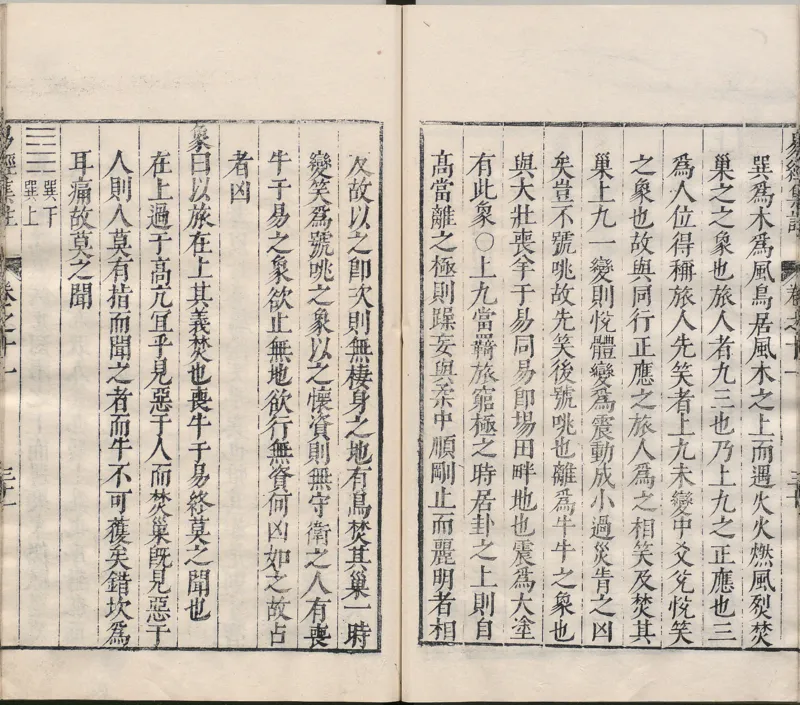 巽為木為風鳥居風木之上而遇火火燃風烈焚
巢之之象也旅人者九三也乃上九之正應也三
為人位得稱旅人先笑者上九未變中爻兌悅笑
之象也故與同行正應之旅人為之相笑及焚其
巢上九一變則悅體變為震動成小過災眚之凶
矣豈不號咷故先笑後號咷也離為牛牛之象也
與大壯喪羊于易同易即場田畔地也震為大塗
有此象○上九當羇旅窮極之時居卦之上則自
高當離之極則躁妄與柔中順剛止而麗明者相
反故以之即次則無棲身之地有鳥焚其巢一時
變笑為號咷之象以之懷資則無守衛之人有喪
牛于易之象欲止無地欲行無資何凶如之故占
者凶
象曰以旅在上其義焚也喪牛于易終莫之聞也
在上過于高亢宜乎見惡于人而焚巢既見惡于
人則人莫有指而聞之者而牛不可獲矣錯坎為
耳痛故莫之聞
巽下
巽上
易經集註 卷之十一